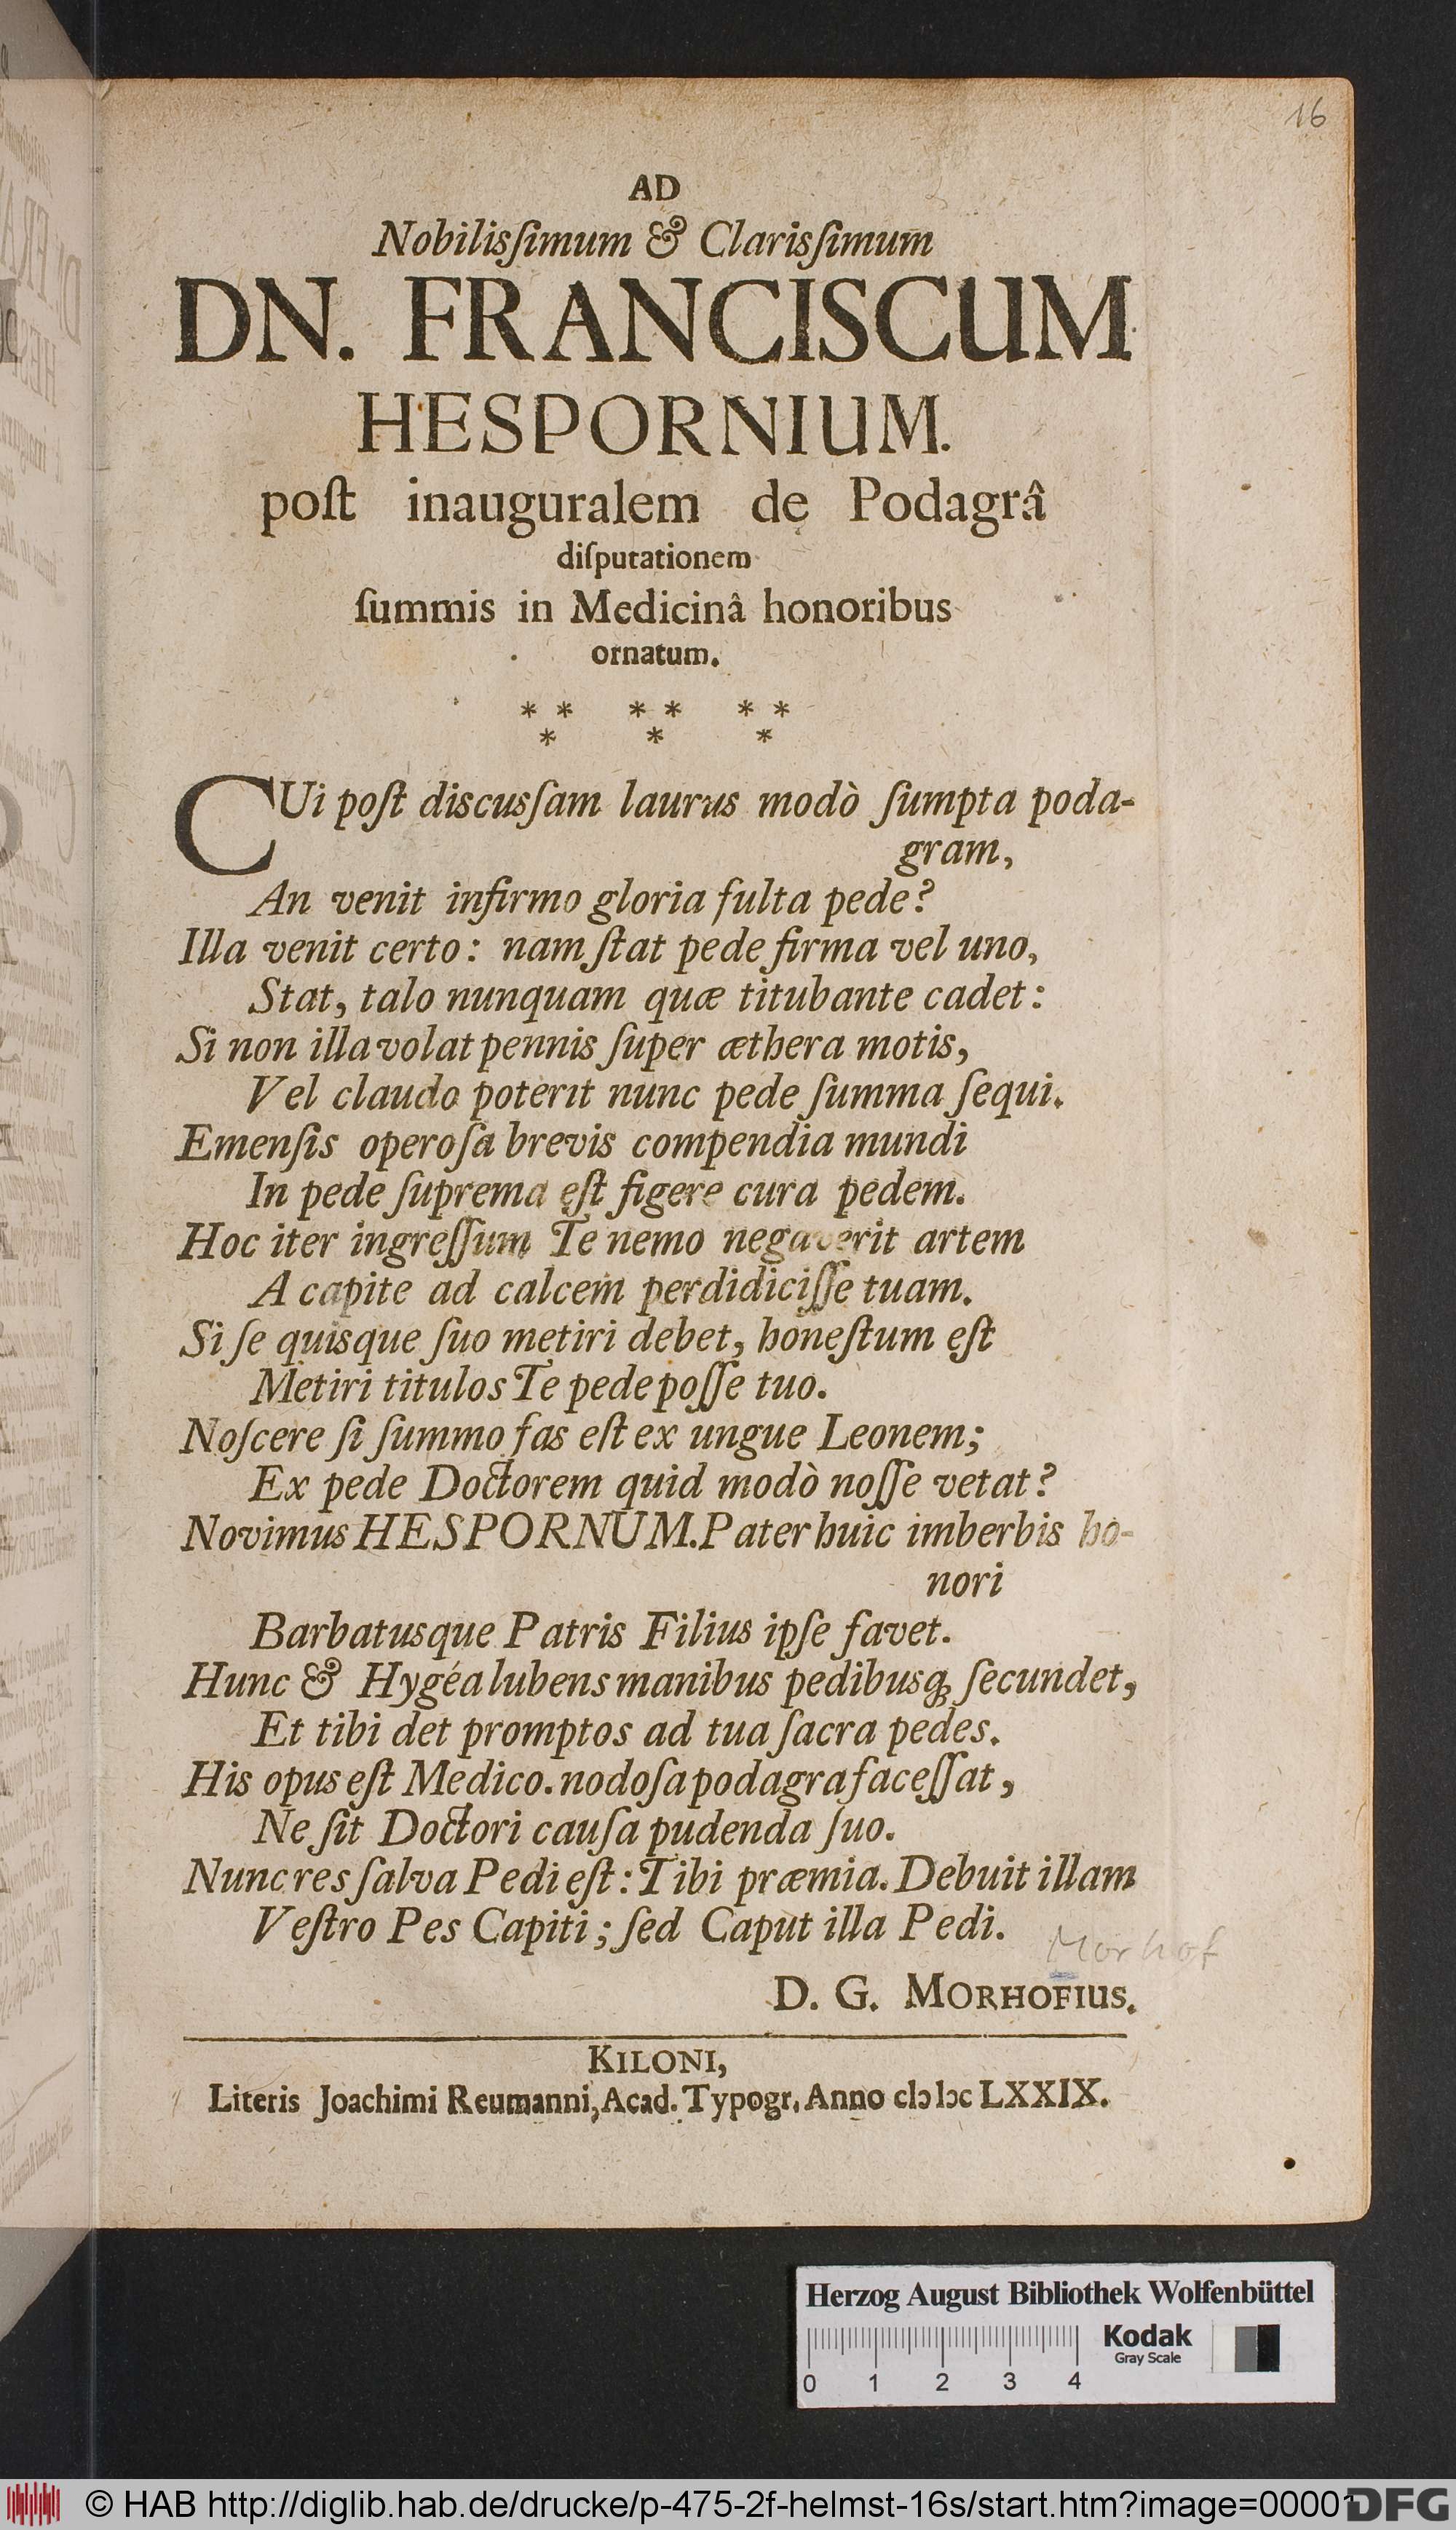 16
AD
Nobilisſimum & Clarisſimum
DN. FRANCISCUM
HESPORNIUM.
poſt inauguralem de Podagrâ
diſputationem
ſummis in Medicinâ honoribus
ornatum.
* * * * * *
* * *
CUi poſt discusſam laurus modò ſumpta poda-
gram,
An venit infirmo gloria fulta pede?
Illa venit certo: nam ſtat pede firma vel uno,
Stat, talo nunquam quæ titubante cadet:
Si non illa volat pennis ſuper æthera motis,
Vel claudo poterit nunc pede ſumma ſequi.
Emenſis operoſa brevis compendia mundi
In pede ſuprema eſt figere cura pedem.
Hoc iter ingreſſum Te nemo negaverit artem
A capite ad calcem perdidiciſſe tuam.
Si ſe quisque ſuo metiri debet, honeſtum eſt
Metiri titulos Te pede poſſe tuo.
Noſcere ſi ſummo fas eſt ex ungue Leonem;
Ex pede Doctorem quid modò noſſe vetat?
Novimus HESPORNUM. Pater huic imberbis ho-
nori
Barbatusque Patris Filius ipſe favet.
Hunc & Hygéa lubens manibus pedibusq; ſecundet,
Et tibi det promptos ad tua ſacra pedes.
His opus eſt Medico. nodoſa podagra faceſſat,
Ne ſit Doctori cauſa pudenda ſuo.
Nunc res ſalva Pedi eſt: Tibi præmia. Debuit illam
Veſtro Pes Capiti; ſed Caput illa Pedi.
Morhof
D. G. MORHOFIUS.
KILONI,
Literis Joachimi Reumanni, Acad. Typogr. Anno cIↄ Iↄc LXXIX.
Herzog August Bibliothek Wolfenbüttel
Kodak
Gray Scale
0 1 2 3 4
© HAB http://diglib.hab.de/drucke/p-475-2f-helmst-16s/start.htm?image=00001
DFG